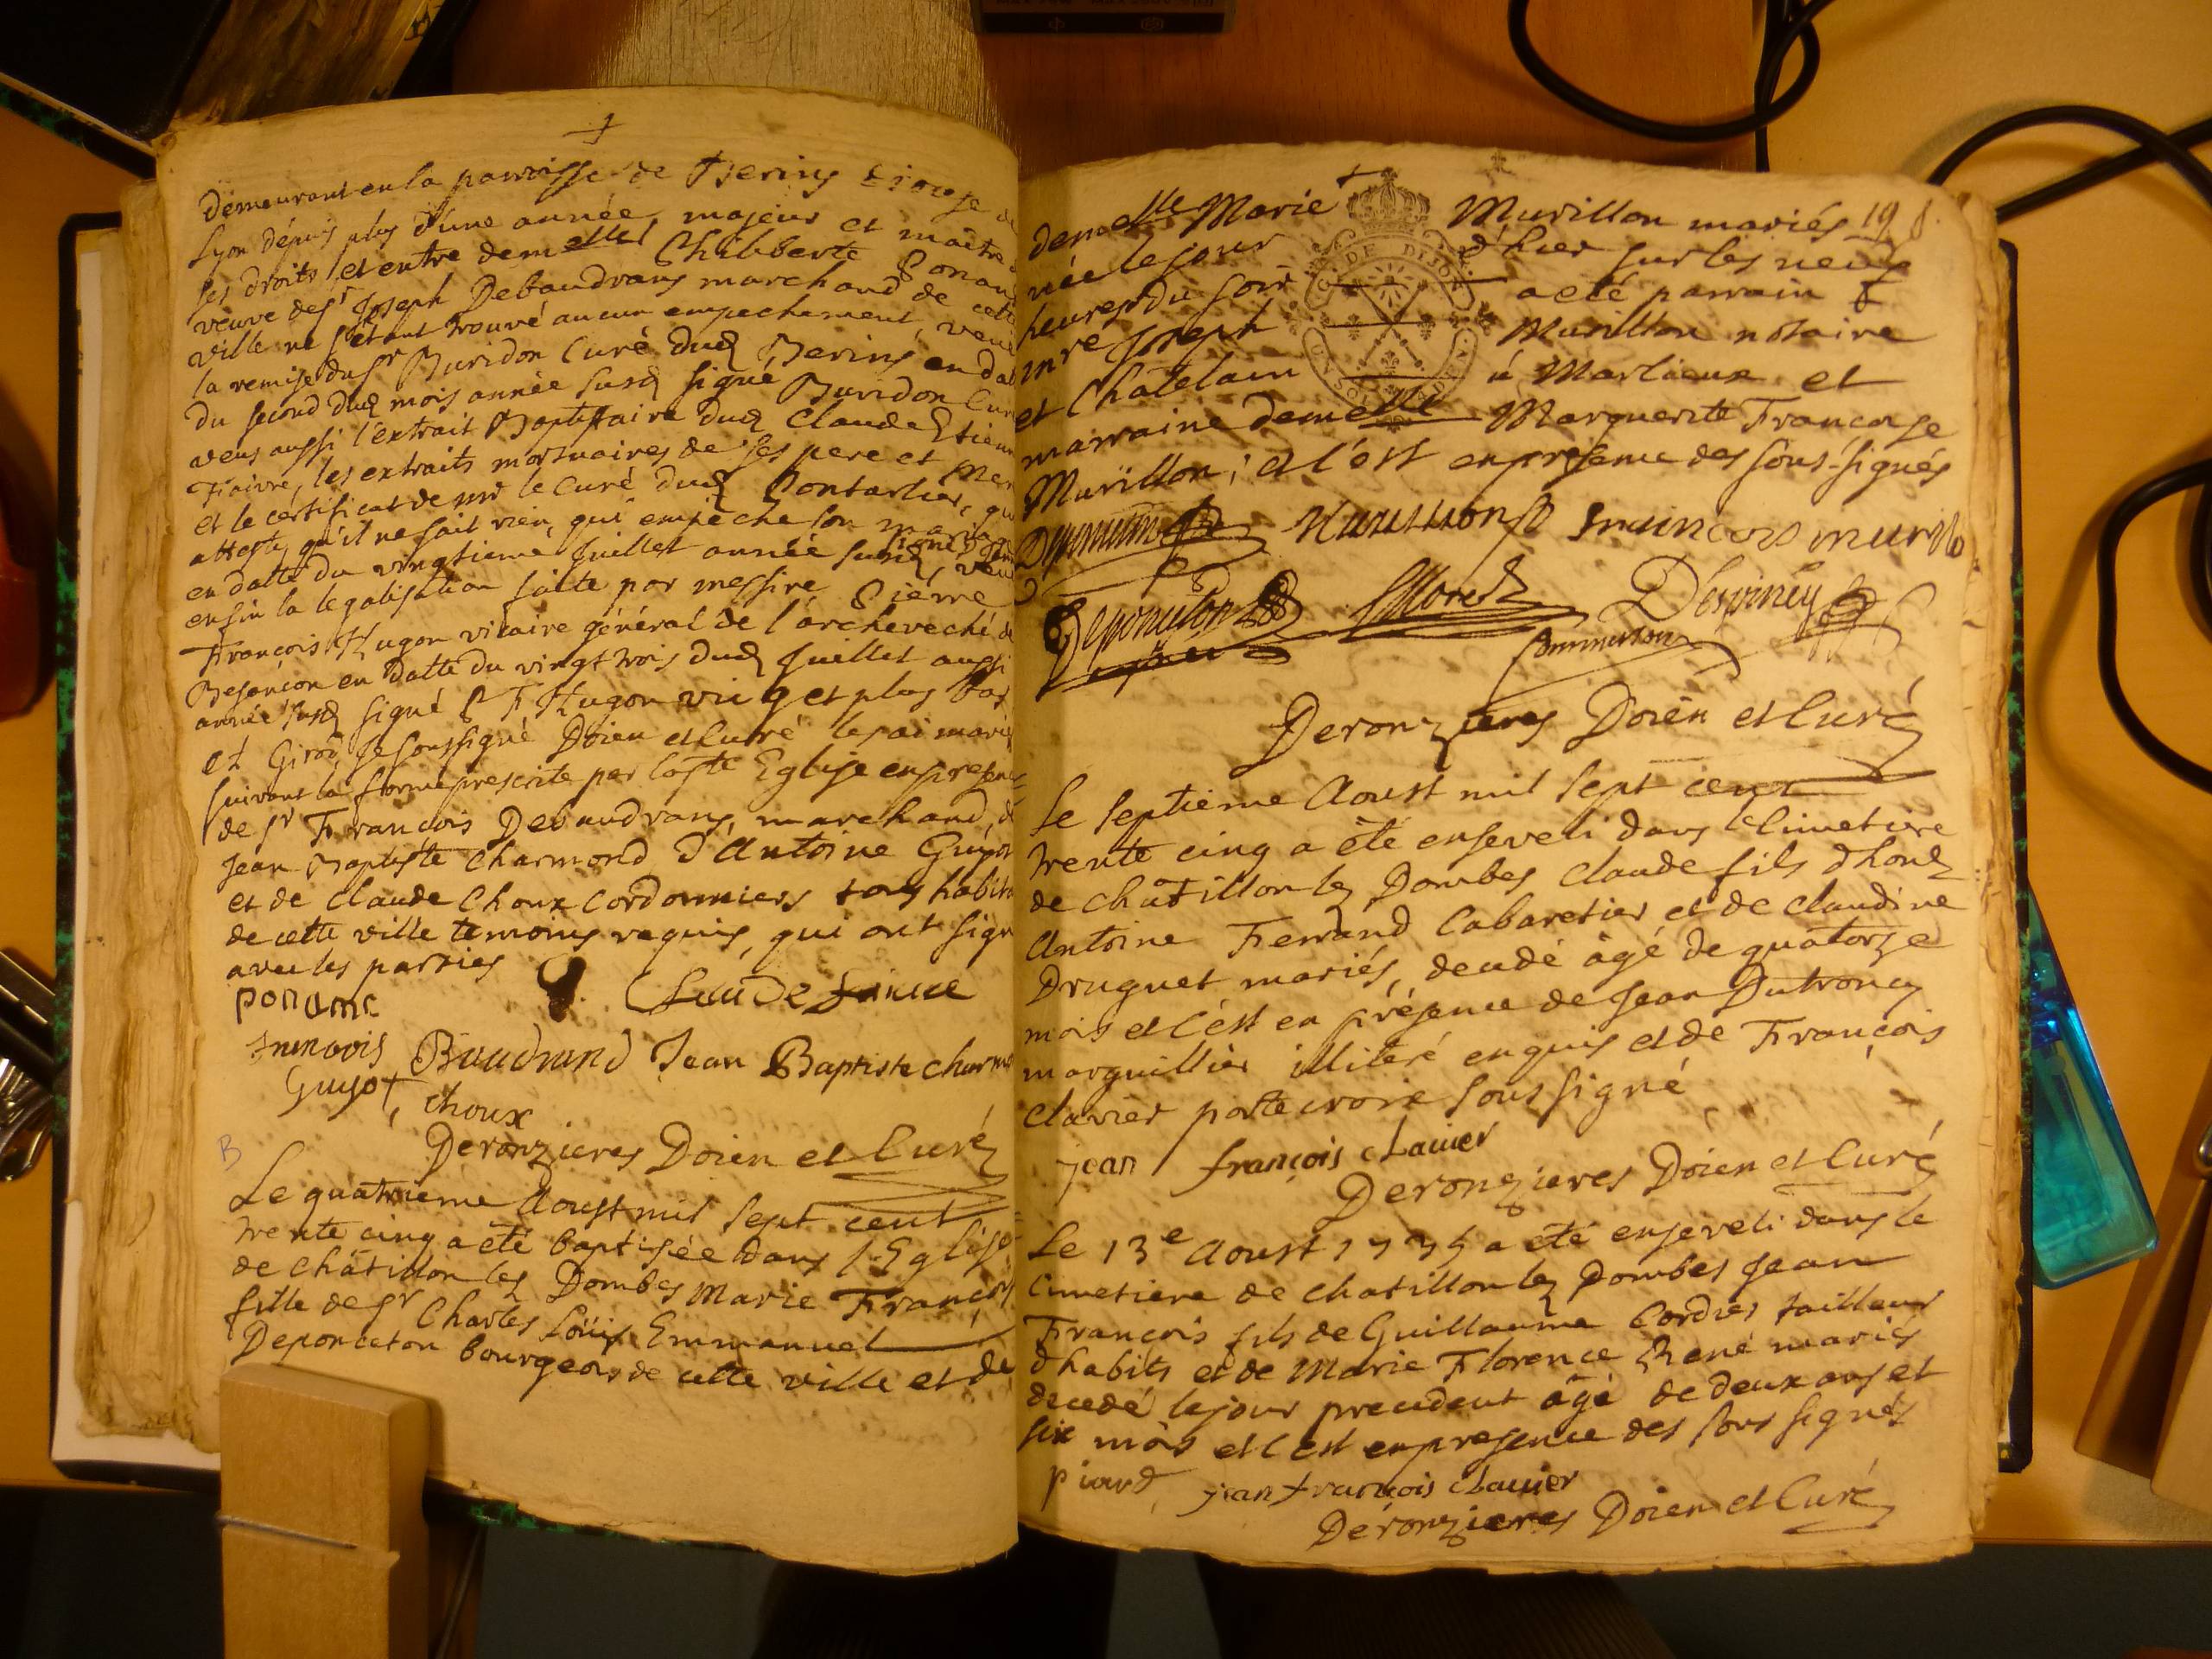 demeurant en la parroisse de Beriny
Lyon dépuis plus d'une année, majeur et maitre
ses droits et entre demelle Philiberte Ponan
veuve de sr Joseph Debaudrans marchand de cette
ville ne s'étant trouvé aucun empechement, veue
la remise du sr Buridon Curé dud Beriny en dat
du second dud mois année susd signé Buridon Curé
veus aussi l'extrait Baptistaire dud Claude Etienn
Faivre, les extraits mortuaires de ses pere et mer
et le certificat de mr le Curé dud Pontarlier, qui
atteste, qu'il ne sait rien, qui empéche son maria
en datte du vingtieme Juillet année susd, veue
enfin la legalisation faite par messire Piérre
François Hugon vicaire général de l'archeveché de
Besançon en datte du vingt trois dud Juillet aussi
année susd signé P F Hugon vic g et plus bas
Girod, je soussigné Doien et Curé les ai mariés
suivant la forme prescrite par laste Eglise en presence
de sr François Debaudrans, marchand, de
Jean Baptiste Charmond d'Antoine Guyot
et de Claude Choux Cordonniers tous habits
de cette ville temoins requis, qui ont sign
avec les parties
ponanc Claude faivre
françois Baudrand Jean Baptiste charmo
Guyot, choux
Deronzieres Doien et Curé
B
Le quatrieme Aoust mil sept cent
trente cinq a été baptisée dans l'Eglise
de châtillon les Dombes Marie Françoi
fille de sr Charles Loüis Emmanuel
Deponceton bourgeois de cette ville et de
demelle Marie Murillon mariés 19
née le jour d'hier sur les neuf
heures du soir a eté parrain
mre Joseph Murillon notaire
et Châtelain à Marlieux et
marraine demelle Marguerite Françoise
Murillon; et c'est en presence des sous-signés
G. DE DIJON
françois murillo
Deponceton
Deronzieres Doien et Curé
Le septieme Aoust mil sept cent
trente cinq a été enseveli dans le Cimetiere
de châtillon les Dombes Claude fils d'hon
Antoine Ferrand Cabaretier et de Claudine
Druguet mariés, decedé âgé de quatorze
mois et c'est en présence de Jean Dutroncy
marguillier illiteré enquis et de François
Clavier porte croix sous signé
jean françois clauier
Deronzieres Doien et Curé
Le 13e Aoust 1735 a été enseveli dans le
Cimetiere de chatillon les Dombes Jean
François fils de Guillaume Cordier tailleur
d'habits et de Marie Florence René mariés
decedé le jour precedent âgé de deux ans et
six mois et c'est en presence des sous signés
piard, jean françois clauier
Deronzieres Doien et Curé